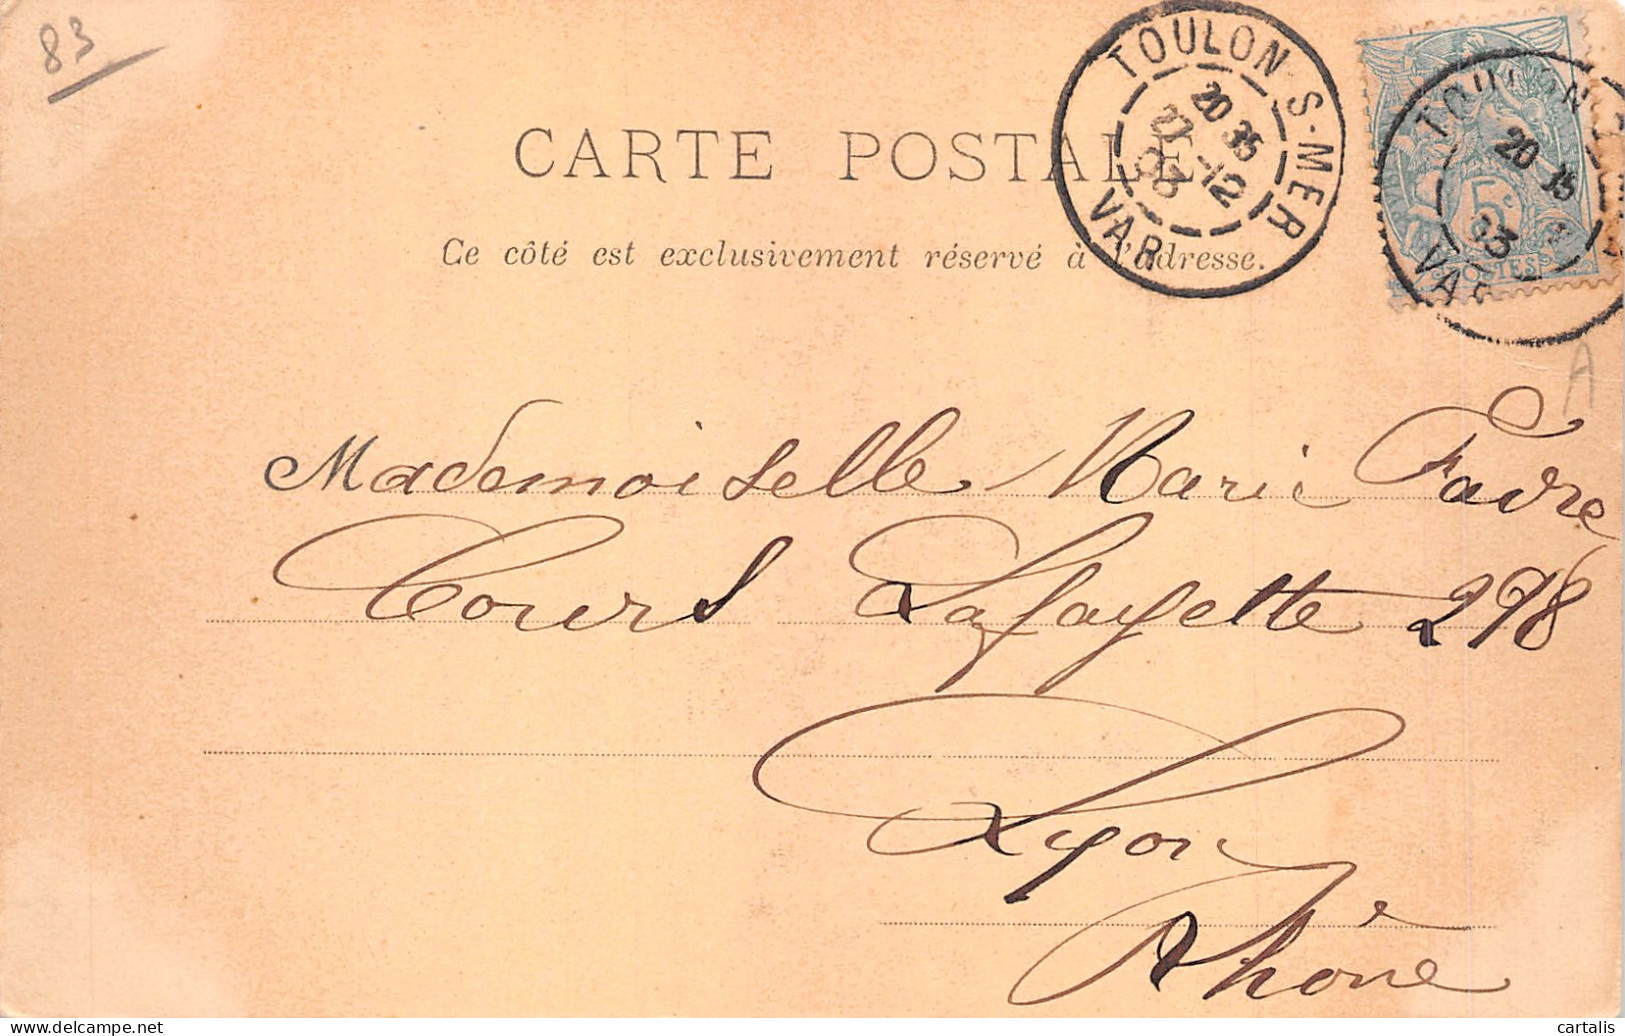 83
TOULON-S-MER
20 35
27-12
03
VAR
TOULON
20 15
03
VAR
5c
POSTES
CARTE POSTALE
Ce côté est exclusivement réservé à l'adresse.
A
Mademoiselle Marie Favre
Cours Lafayette 298
Lyon
Rhône
delcampe.net
cartalis